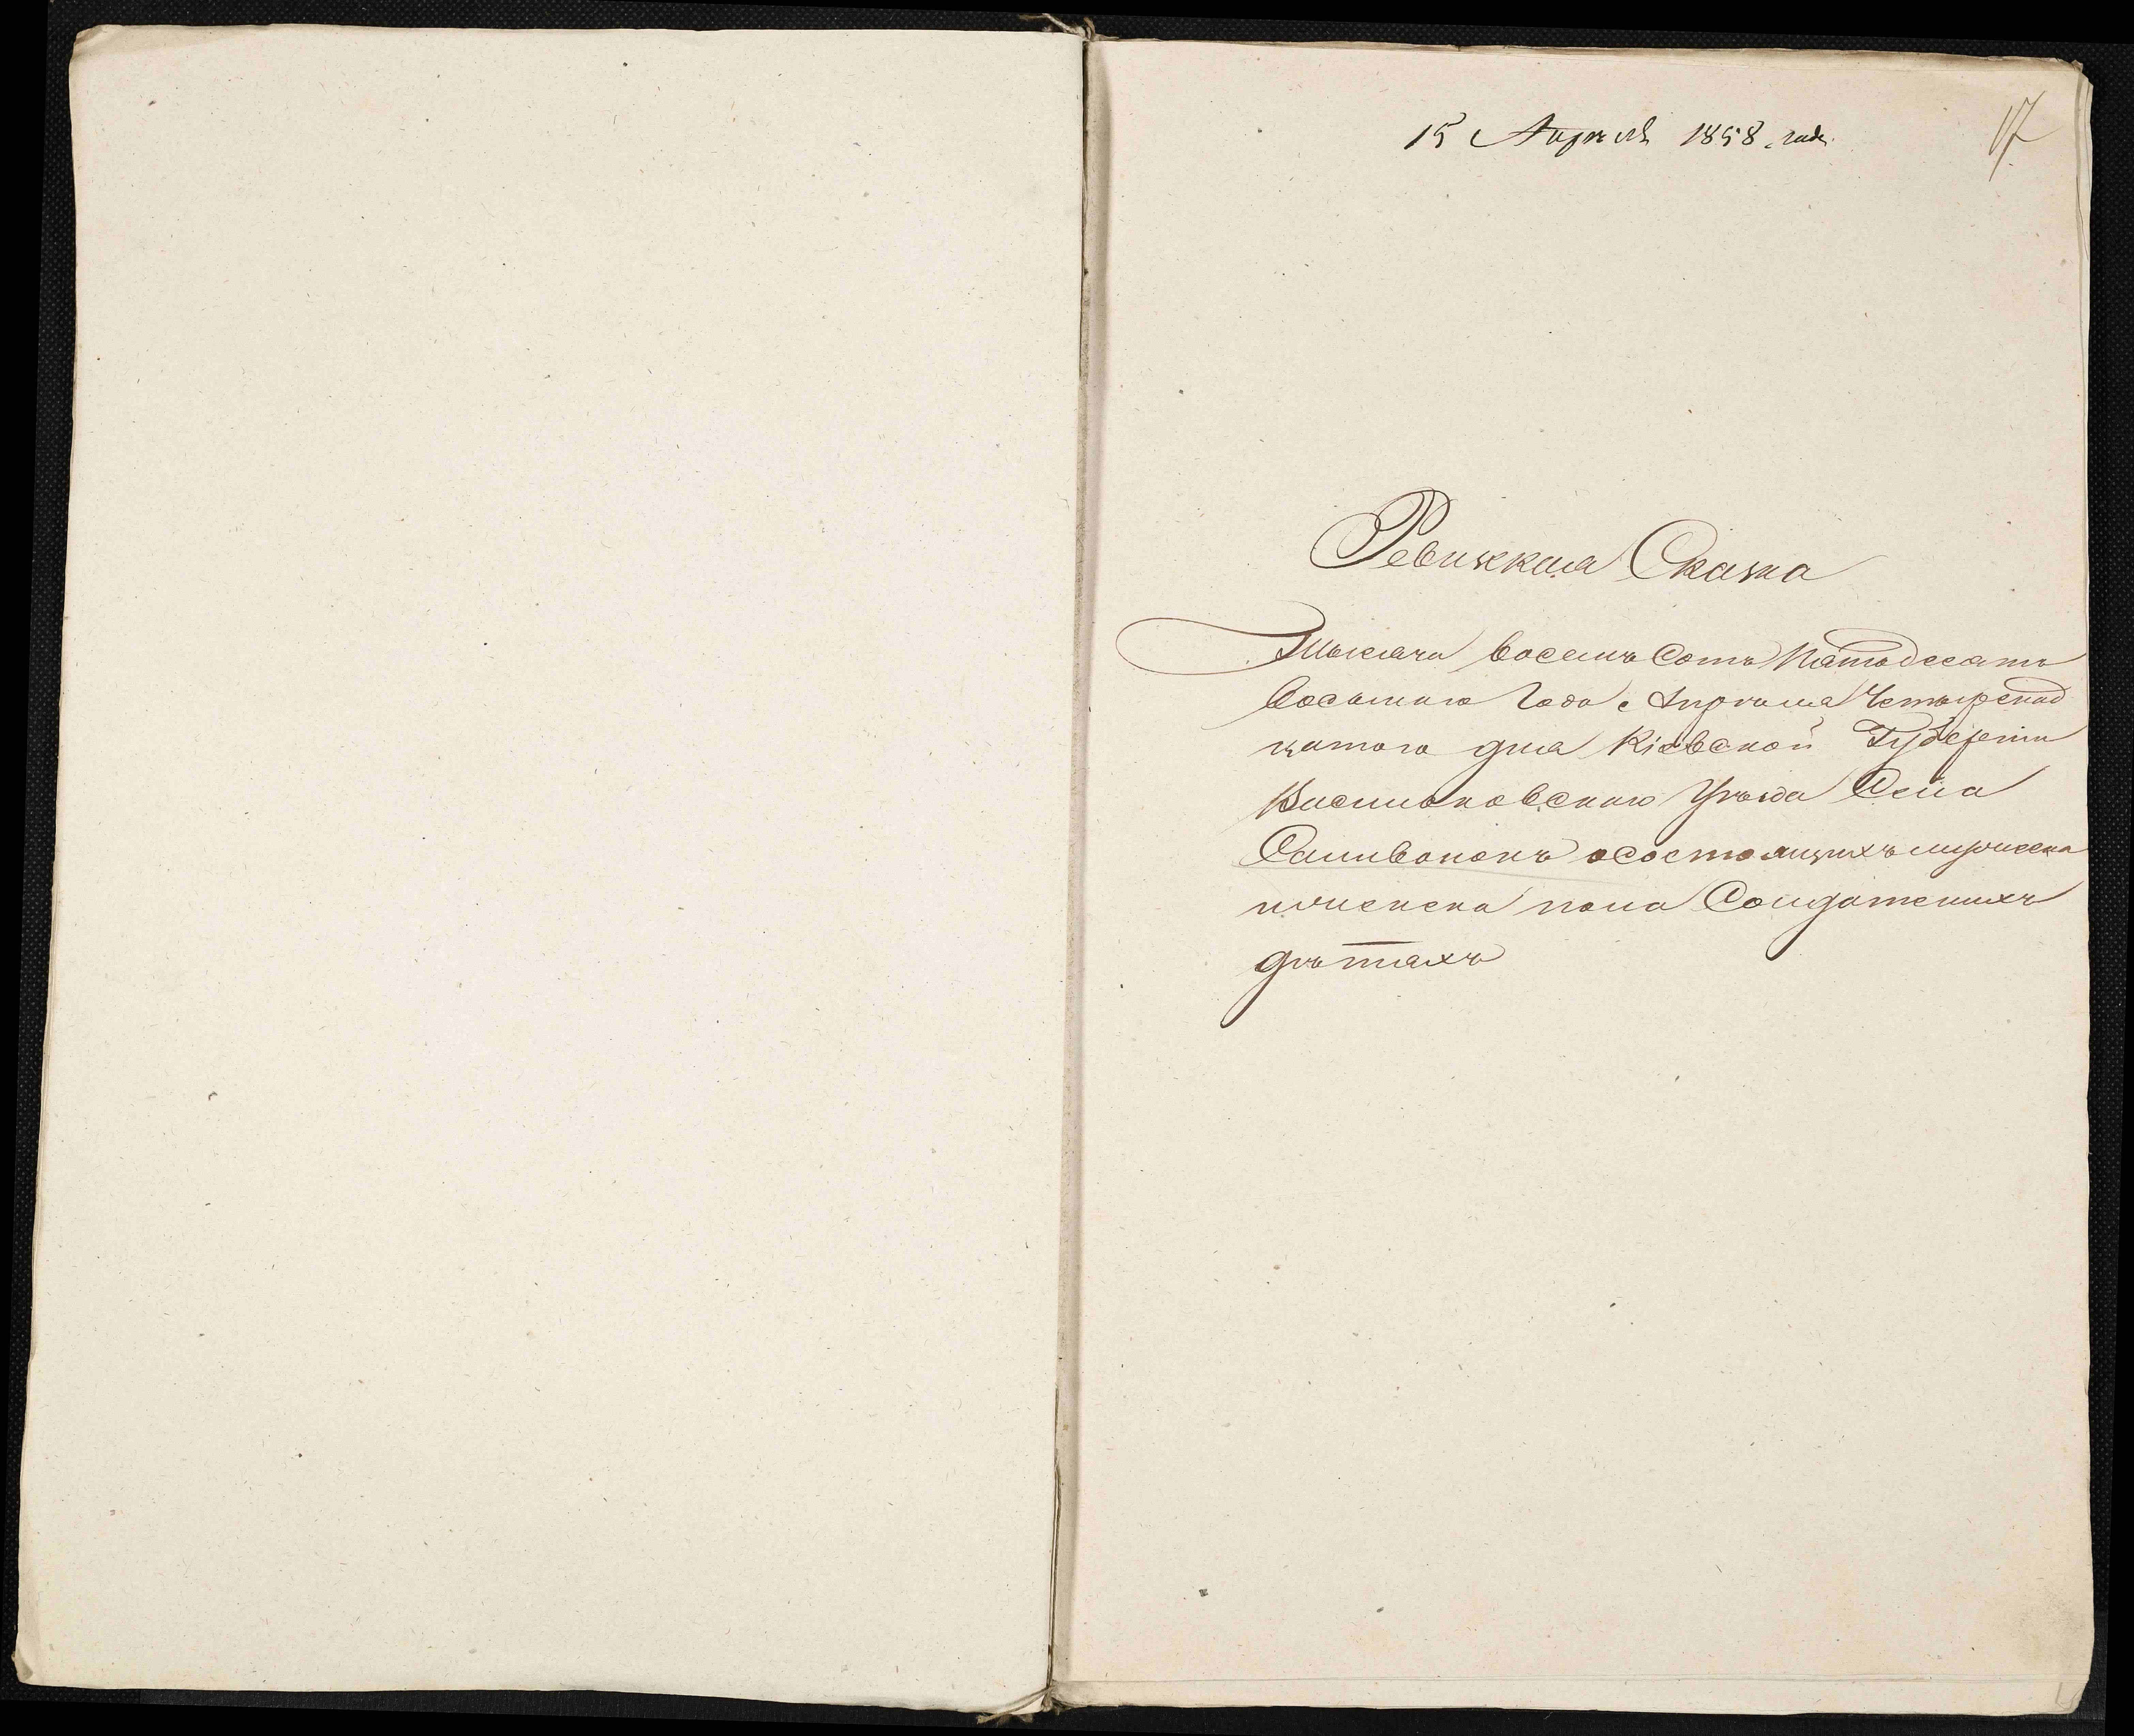 15 Апрѣля 1858 года.
17
Ревизская Сказка
Тысяча восемь Сотъ Пятьдесятъ
Восьмого Года Апрѣля Четыренад
цатого дня Кіевской Губерніи
Васильковскаго Уѣзда Села
Саливонокъ о состоящихъ мужеска
и женска пола Солдатскихъ
дѣтяхъ